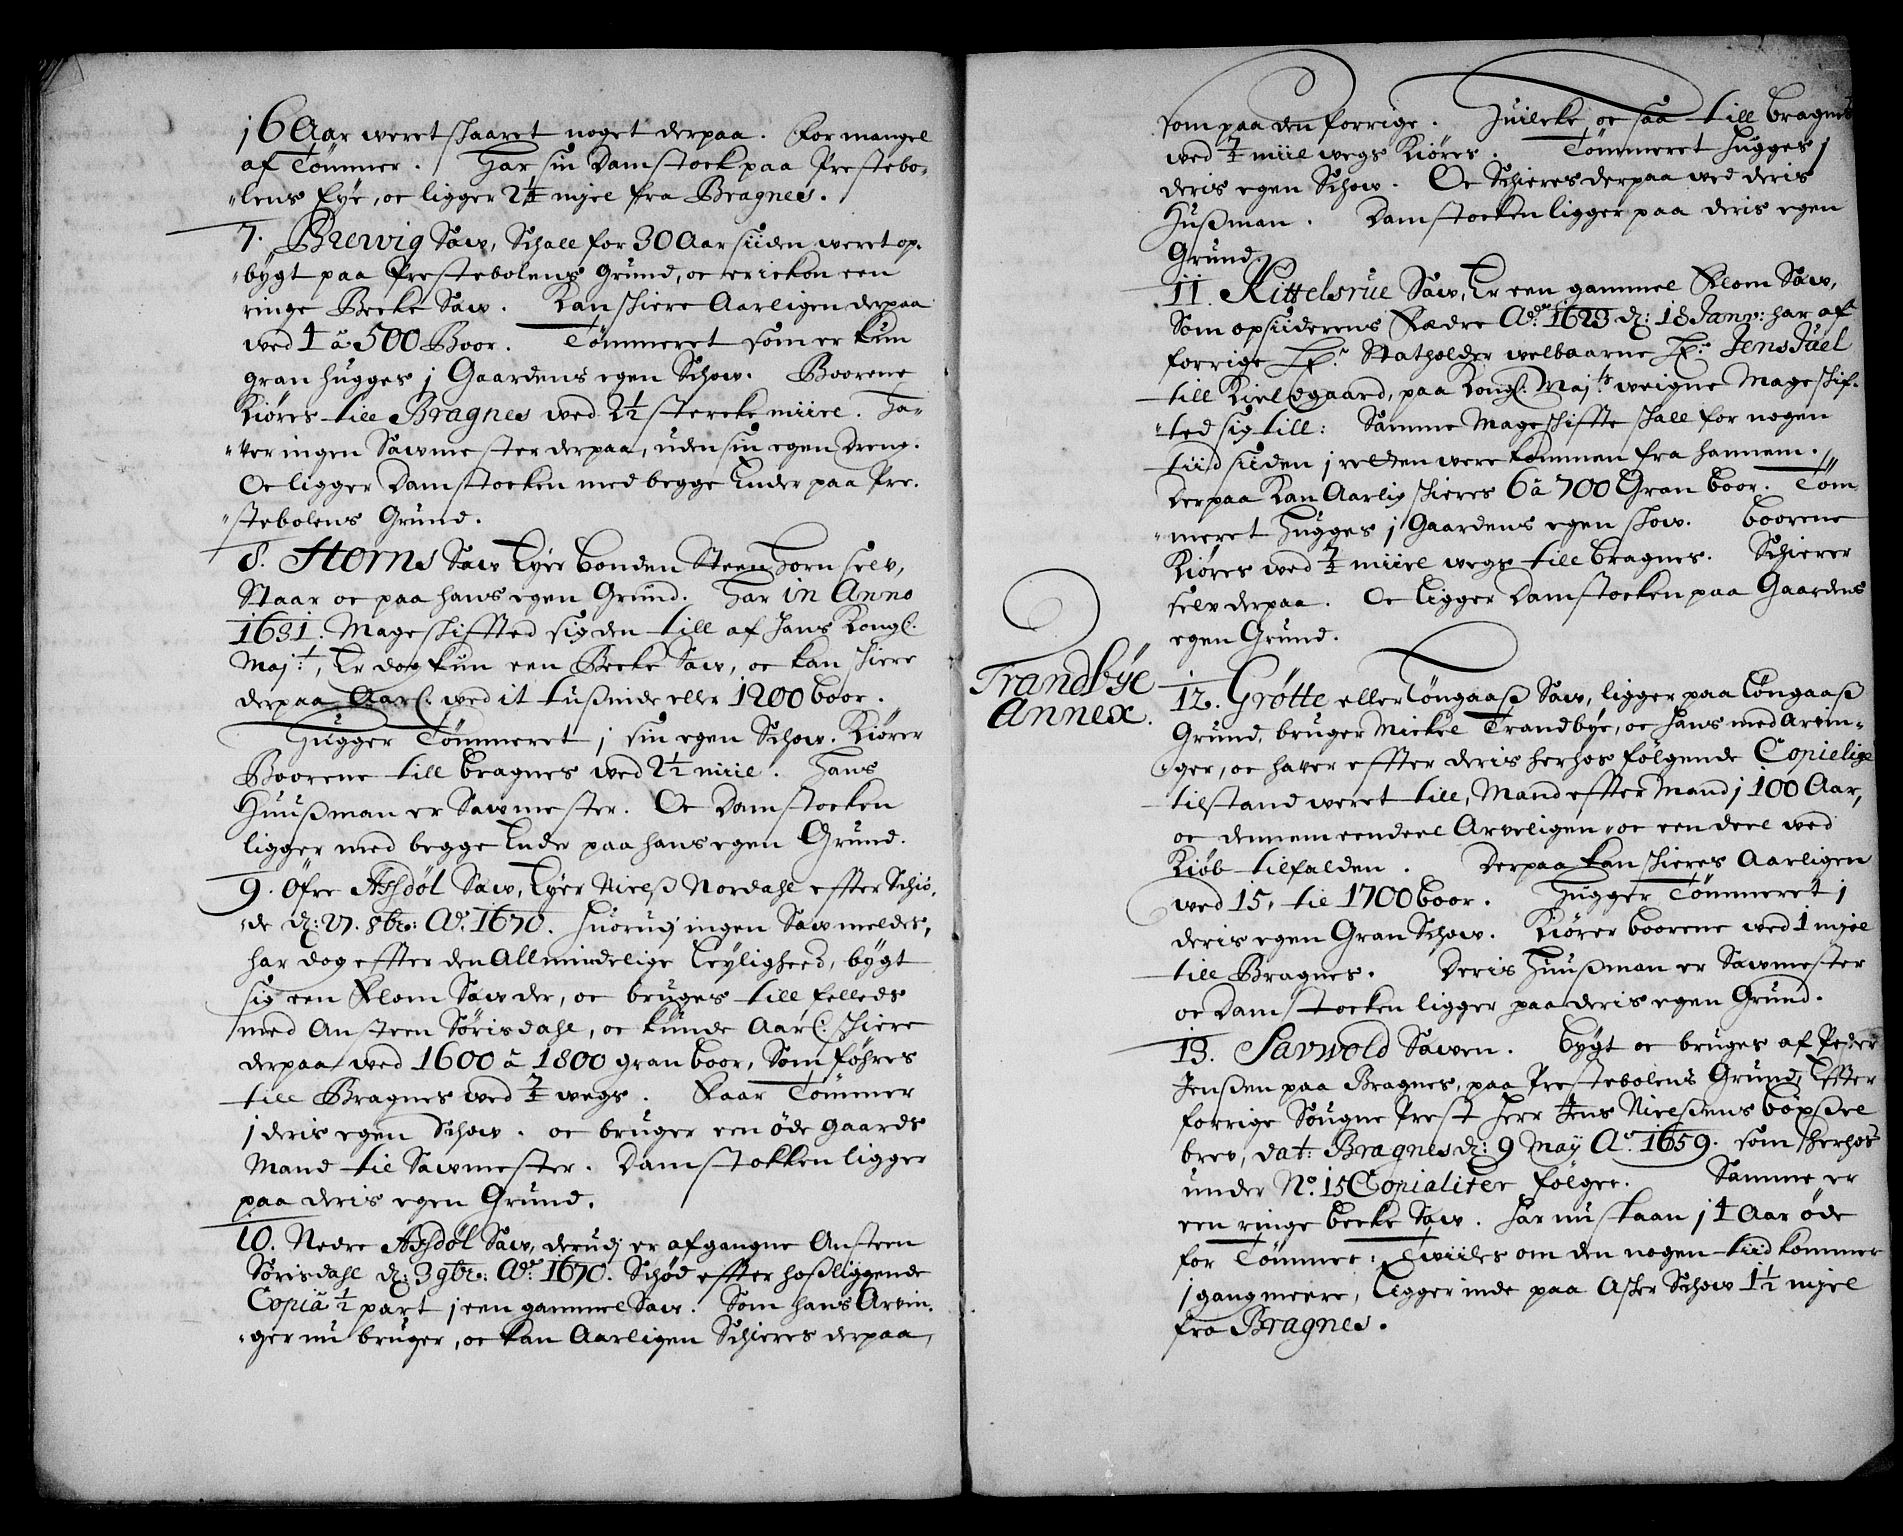 j 6 Aar weret skaaret noget derpaa. For mangel
af Tömmer. Har sin Damstock paa Prestebo-
lens Eye, oc ligger 2¼ mjel fra Bragnes.
7. Brewig Saw, Schall for 30 Aar siiden weret op-
bygt paa Prestebolens Grund, oc er ickon een
ringe Becke Saw. Kan schiere Aarligen derpaa
wed 4 â 500 Boor. Tömmeret som er kun
gran hugges j Gaardens egen Schow. Boorene
Kiöres till Bragnes wed 2½ stercke miile. Ha-
wer ingen Sawmester derpaa, uden sin egen dreng.
Oc ligger Damstocken med begge Ender paa Pre-
stebolens Grund.
8. Horns Saw Eyer bonden Steen Horn selv,
Staar oc paa hans egen Grund. Har in Anno
1631. Mageskiffted sig den till af Hans Kongl:
Maj:t, Er dog kun een Becke Saw, oc kan schiere
derpaa Aarl: wed it tußinde eller 1200 boor.
Hugger Tömmeret j sin egen Schow. Kiörer
Boorene till bragnes wed 2½ miil. Hans
Huußman er Sawmester. Oc Damstocken
ligger med begge Ender paa hans egen Grund.
9. Öfre Assdöl Saw, Eyer Nielß Nordahl effter Schiö-
de d: 27. 8br: Ao. 1670. Huorudj ingen Saw meldes,
har dog effter den Allmindelige Leylighed, bygt
sig een Flom Saw der, oc bruges till felleds
med Ansteen Sörisdahl, oc kunde Aarl: schiere
derpaa wed 1600 â 1800 gran boor, Som föhres
till Bragnes wed 7/4 wegs. Faar Tömmer
j deris egen Schow. oc bruger een öde gaards
Mand til Sawmester. Damstokken ligger
paa deris egen Grund.
10. Nedre Assdöl Saw, derudj er afgangne Ansteen
Sörisdahl d: 3 9br: Ao: 1670. Schöd effter hoßliggende
Copia ½ part j een gammel Saw. Som hans Arvin-
ger nu bruger, oc kan Aarligen Schieres derpaa,
som paa den forrige. Huilcke oc saa till bragnes
wed 7/4 miil wegs Kiöres. Tömmeret Hugges j
deris egen Schow. Oc Schieres derpaa wed deris
Hußman. Damstocken ligger paa deris egen
Grund.
11. Kittelsrue Saw, Er een gammel Flom Saw,
Som opsiiderens Fædre Ao: 1623 d: 18 Janv: har af
forrige Hr. Statholder welbaarne Hr: Jens Juel
till Kieldgaard, paa Kongl: Maj:ts weigne Mageskif-
ted sig till: Samme Mageskiffte skall for nogen
tiid siiden j ilden were kommen fra hannem.
Derpaa Kan Aarlig schieres 6 â 700 Gran boor. Töm-
meret Hugges j Gaardens egen schow. boorene
Kiöres wed 7/4 miil wegs till bragnes. Schierer
selv derpaa. Oc ligger Damstocken paa Gaardens
egen Grund.
Trandbye
Annex.
12. Grötte eller Töngaaß Saw, ligger paa Töngaaß
Grund, bruger Mickel Trandbye, oc Hans med arvin-
ger, oc hawer effter deris herhos fölgende Copielige
tilstand weret till, Mand effter Mand j 100 Aar,
oc dennem eendeel Arveligen oc een deel wed
Kiöb tilfalden. Derpaa kan schieres Aarligen
wed 15, til 1700 boor. Hugger Tömmeret j
deris egen Gran Schow. Kiörer boorene wed 1 mjel
till Bragnes. Deris Huußman er Sawmester
oc Damstocken ligger paa deris egen Grund.
13. Sawvold Sawen. bygt oc bruges af Peder
Jensen paa Bragnes, paa Prestebolens Grund, Effter
forrige Sougne Prest Herr Jens Nielsens böxsel
brev, dat: Bragnes d: 9 May Ao. 1659. som herhos
under No. 15 Copialiter fölger. Samme er
een ringe becke Saw. har nu staan j 4 Aar öde
for Tömmer: Twiiles om den nogen tiid kommer
j gang meere, ligger inde paa Asker Schow 1½ mjel
fra Bragnes.